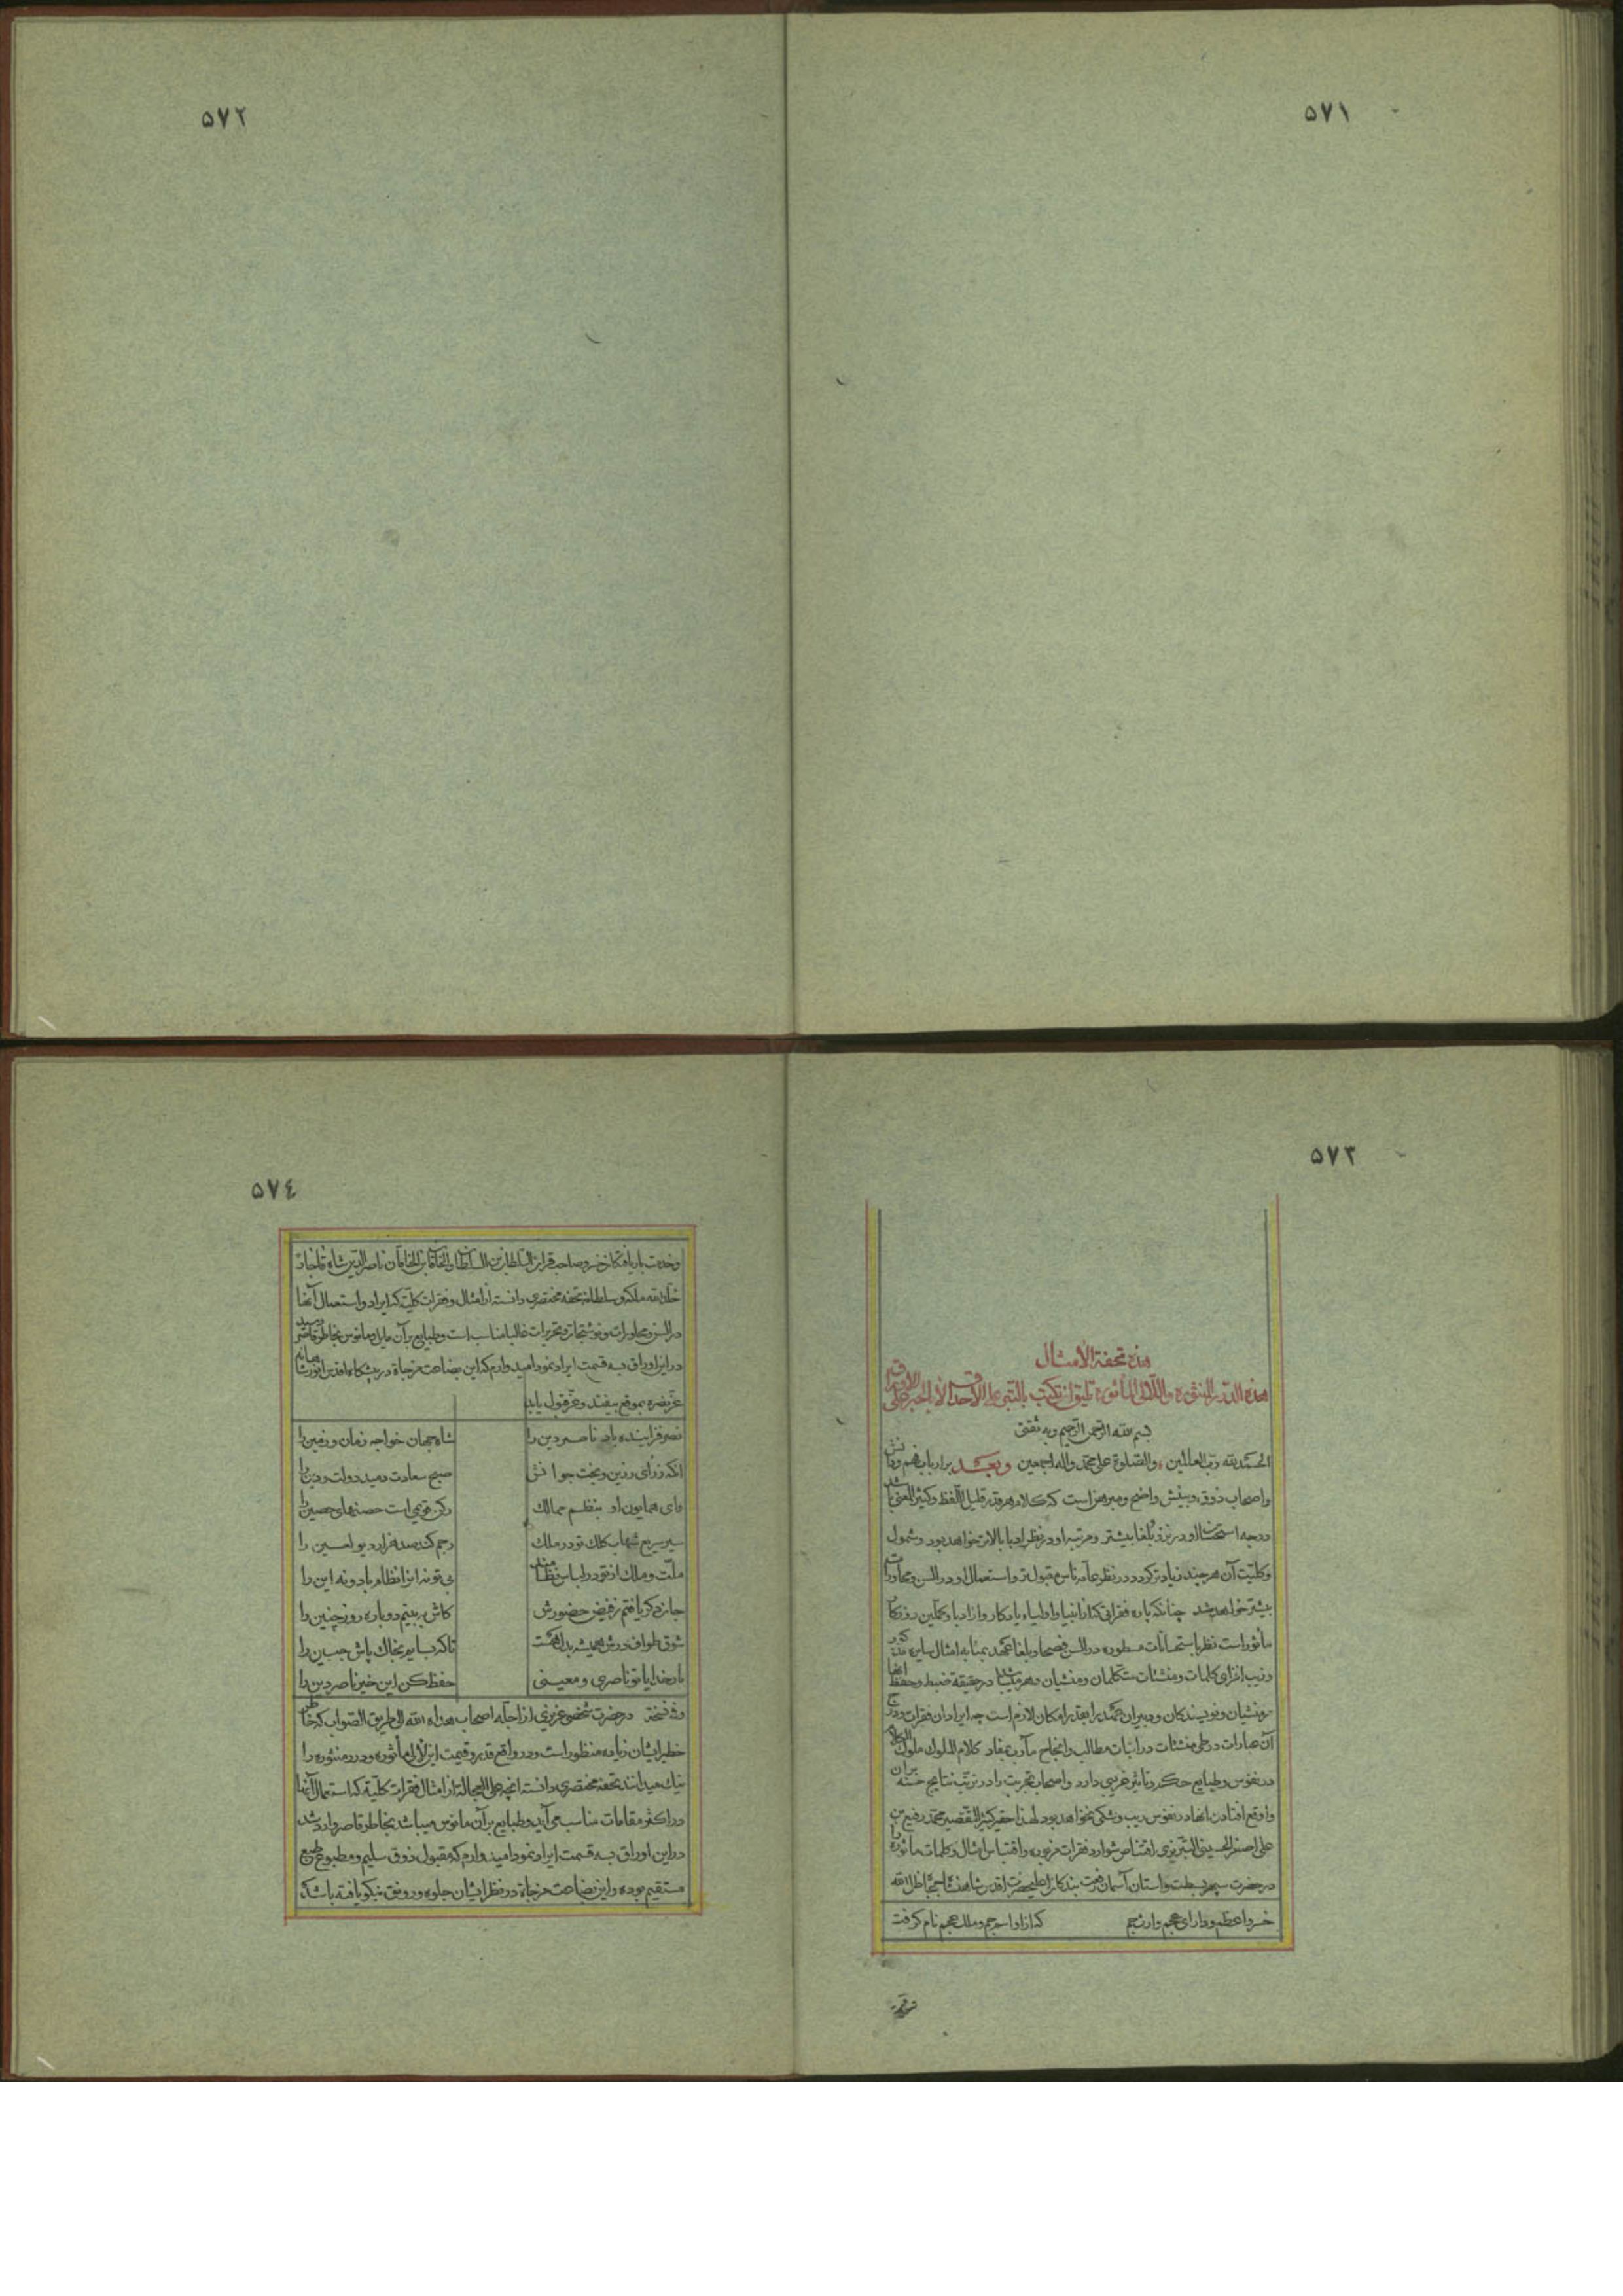 ٥٧١
٥٧٢
٥٧٣
هذه تحفة الأمثال
هذه الدّرر المنثوره واللّئالی المأثوره تلیق ان تکتب بالتّبر علی الاحداق لا بالحبر علی الاوراق
بسم الله الرّحمن الرّحیم وبه ثقتی
الحمد لله ربّ العالمین والصّلوة علی محمّد واله اجمعین وبعـد برارباب فهم ودانش
واصحاب ذوق وبینش واضح ومبرهن است که کلام هرقدر قلیل اللّفظ وکثیر المعنی باشد
درجه استحسان او در نزد بلغا بیشتر ومرتبه او در نظر ادبا بالاتر خواهد بود وشمول
وکلّیّت آن هرچند زیادتر گردد در نظر عامّه ناس مقبولتر واستعمال او در السن ومحاورات
بیشتر خواهد شد چنانکه پاره فقراتی که از انبیا واولیاء یادکار واز ادبا وکمّلین روزکار
مأثور است نظر باستحسانات مسطوره در السن فصحا وبلغای عهد بمثابه امثال سایره
وزیب افزای کلمات ومنشئات متکلمان ومنشیان
برمنشیان ونویسندکان ودبیران خردمند بقدر امکان لازم است چه ایراد ان فقرات ودرج
آن عبارات در طیّ منشئات در اثبات مطالب وانجاح مآرب بمفاد کلام الملوک ملوک الکلام
در نفوس وطبایع حکم وتاثیر غریبی دارد واصحاب تجربت را در ترتّب نتایج حسنه بران
واوقع افتادن انها در نفوس ریب وشکّی نخواهد بود لهذا احقر کثیر التّقصیر محمّد رفیع بن
علی اصغر الحسینی التّبریزی اقتناص شوارد فقرات مزبوره واقتباس امثال وکلمات مأثوره را
در حضرت سپهر بسطت واستان آسمان رفعت بندکان اعلیحضرت اقدس شاهنشاه جمجاه ظلّ الله
خسرو اعظم ودارای عجم وارث جم که از او اسم جم وملک عجم نام کرفت
٥٧٤
وخدیو صاحبقران السّلطان بن السّلطان الخاقان بن الخاقان ناصر الدّین شاه قاجار
خلّد الله ملکه وسلطانه تحفه مختصری دانسته از امثال وفقرات کلّیّه که ایراد واستعمال آنها
در السن ومحاورات ونوشتجات وتحریرات غالبا مناسب است وطبایع بر آن مایل ومانوس بخاطر قاصر رسید
در این اوراق بسه قسمت ایراد نمود امیدوارم که این بضاعت مزجاة در پیشکاه اقدس انور شاهانه
عزّ نصره بموقع بیفتد وعزّ قبول یابد
نصر فزاینده باد ناصر دین را شاه جهان خواجه زمان وزمین را
انکه ز رای رزین وبخت جوانش صبح سعادت دمید دولت ودین را
رای همایون او بنظم ممالک رکن قویمی است حصنهای حصین را
سیر سریع شهاب کلک تو در ملک رجم کند صد هزار دیو لعین را
ملّت وملک از تو در لباس نظامند بی تو نه ان را نظام باد ونه این را
جان دکر یافتم ز فیض حضورش کاش ببینم دوباره روز چنین را
شوق طواف درش همیشه بدل هست تا که بسایم بخاک پاش جبین را
بارخدایا تو ناصری ومعینی حفظ کن این خیر ناصر دین را
وفی نسخة در حضرت شخص عزیزی از اجلّه اصحاب هداه الله الی طریق الصّواب که خاطر
خطیر ایشان زیاده منظور است ودر واقع قدر وقیمت این لآلی مأثوره ودرر منثوره را
نیک میدانند تحفه مختصری دانسته انچه علی العجالة از امثال وفقرات کلّیّه که استعمال آنها
در اکثر مقامات مناسب می آید وطبایع بر آن مانوس میباشد بخاطر قاصر وارد شد
در این اوراق بسه قسمت ایراد نمود امیدوارم که مقبول ذوق سلیم ومطبوع طبع
مستقیم بوده واین بضاعت مزجاة در نظر ایشان جلوه ورونق نیکو یافته باشد